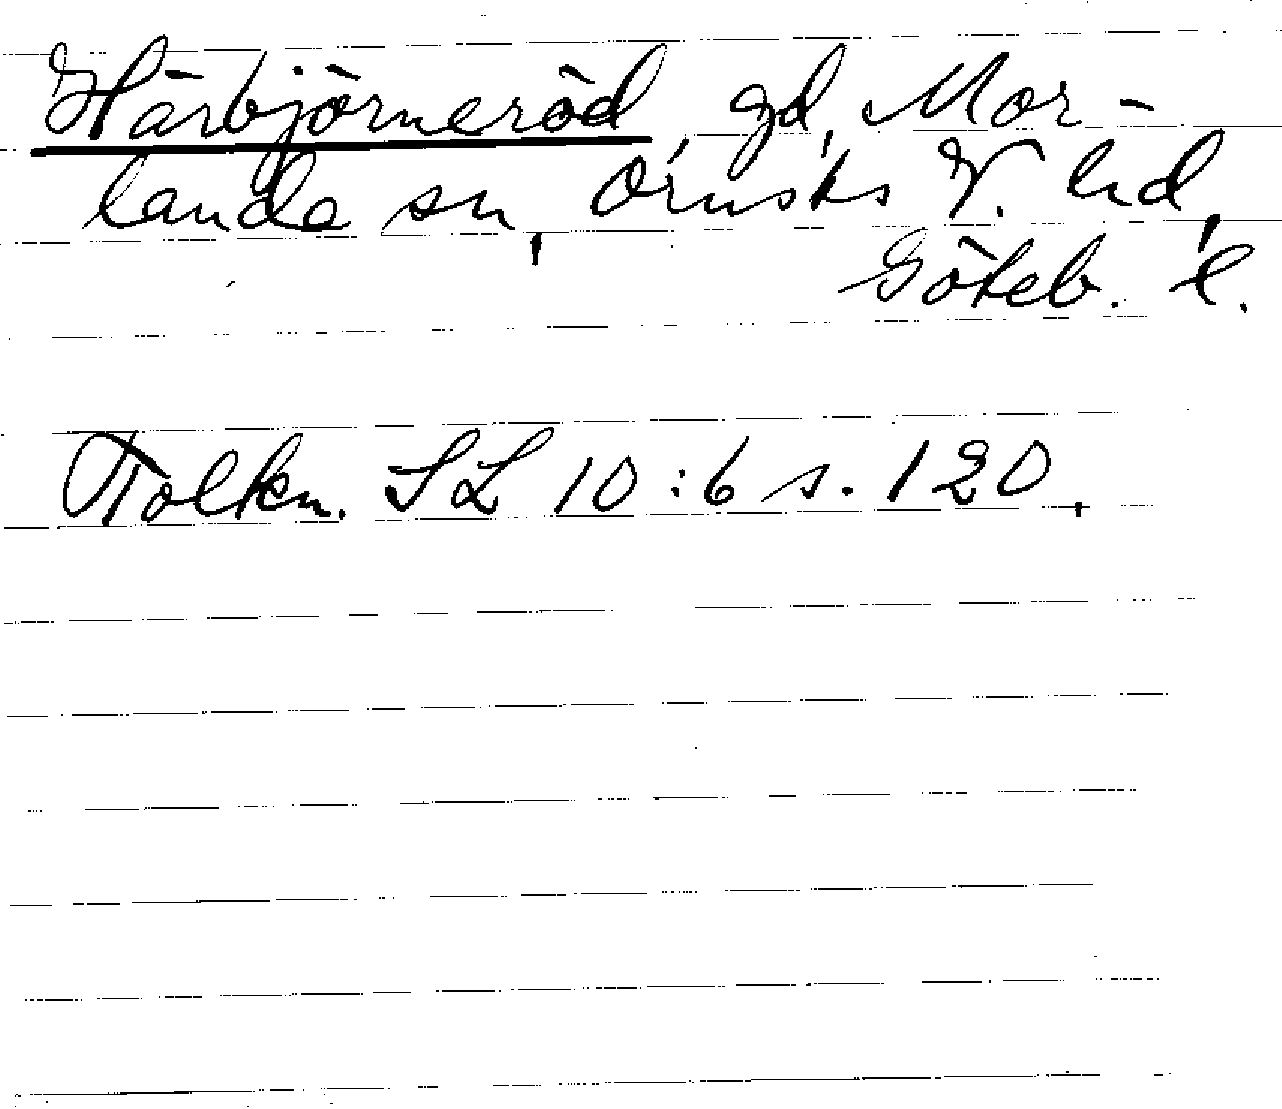 Härbjörneröd gd, Mor-
landa sn, Orusts V. hd,
Göteb. l.
Tolkn. SL 10:6 s. 120.